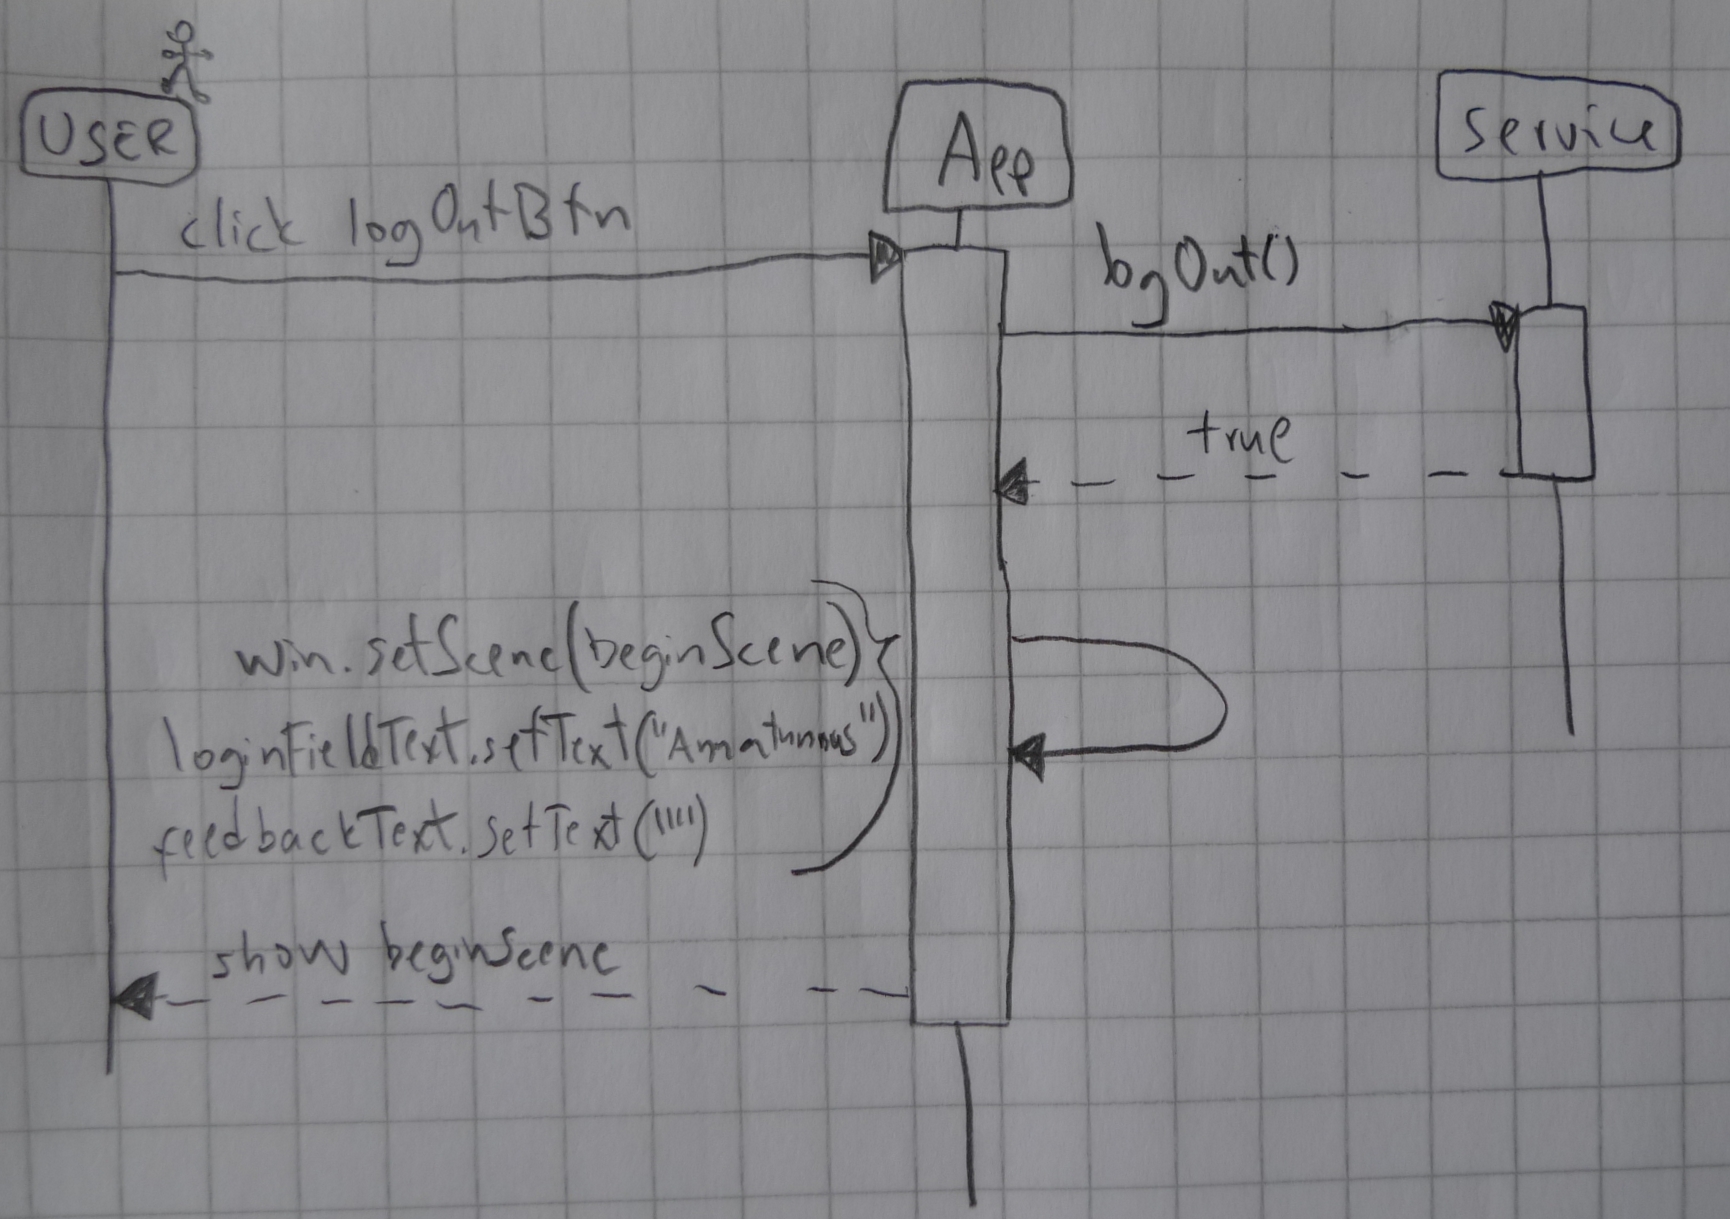 USER
App
Service
click logOutBtn
logOut()
true
win.setScene(beginScene)
loginFieldText.setText("Amatunnus")
feedbackText.setText("")
show beginScene